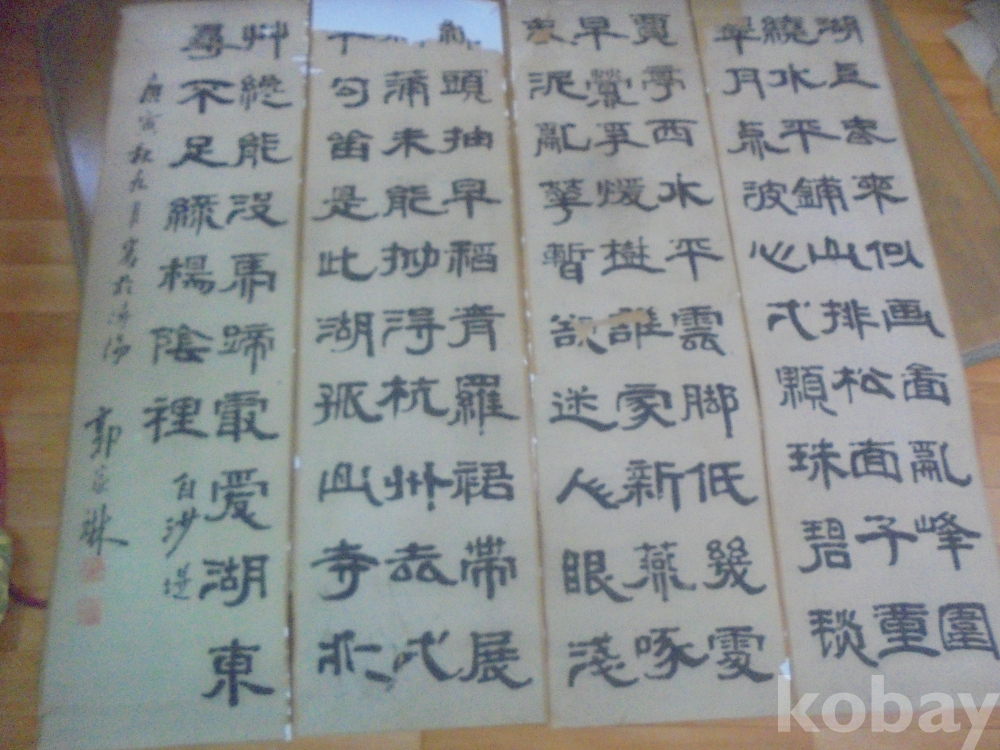 湖上春來似画畵亂峰圍
繞水平鋪山排松面千重
翠月点波心弌顆珠碧毯
賈亭西水平雲脚低幾處
早鶯爭煖樹誰家新燕啄
春泥亂華暫欲迷人眼淺
頭抽早稻青羅裙帶展
蒲未能拗得杭州去弌
勾留是此湖孤山寺北
艸纔能沒馬蹄最爱湖東
不足綠楊陰裡白沙堤
庚寅秋九月寫於 郭家琳
kobay